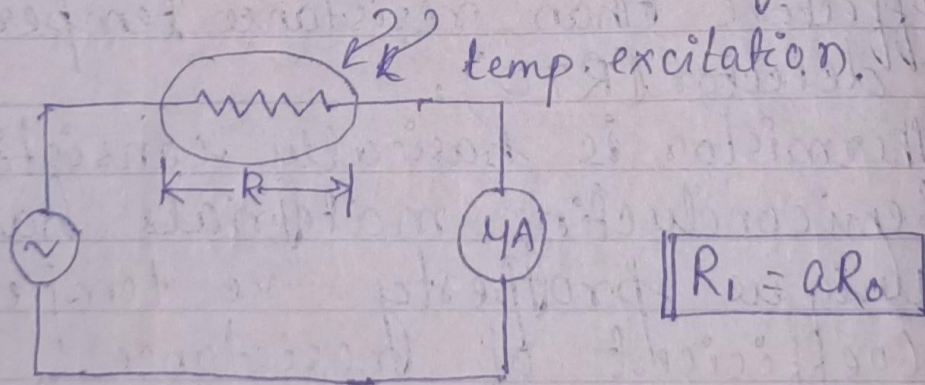 temp. excitation.
R
μA
R₁ = aR₀